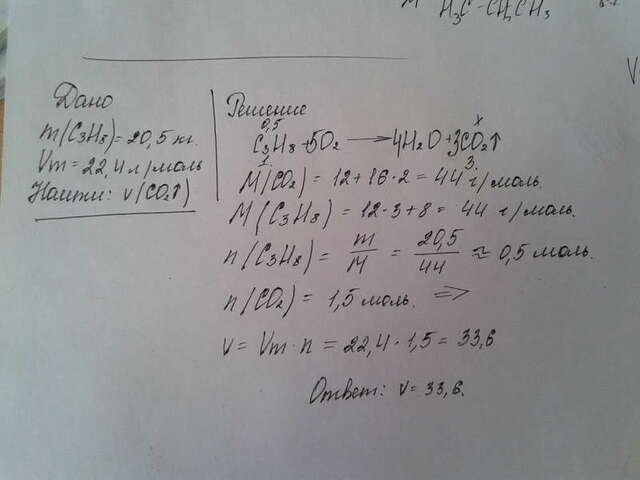 H₃C-CH₂CH₃
Дано
m(C₃H₈)=20,5 кг.
Vm=22,4 л/моль
Найти: v(CO₂↑)
Решение
0,5 x
C₃H₈+5O₂ → 4H₂O+3CO₂↑
1 3
M(CO₂) = 12+16·2 = 44 г/моль.
M(C₃H₈) = 12·3+8 = 44 г/моль.
n(C₃H₈) = m/M = 20,5/44 ≈ 0,5 моль.
n(CO₂) = 1,5 моль. =>
v = Vm·n = 22,4·1,5 = 33,6
Ответ: v=33,6.